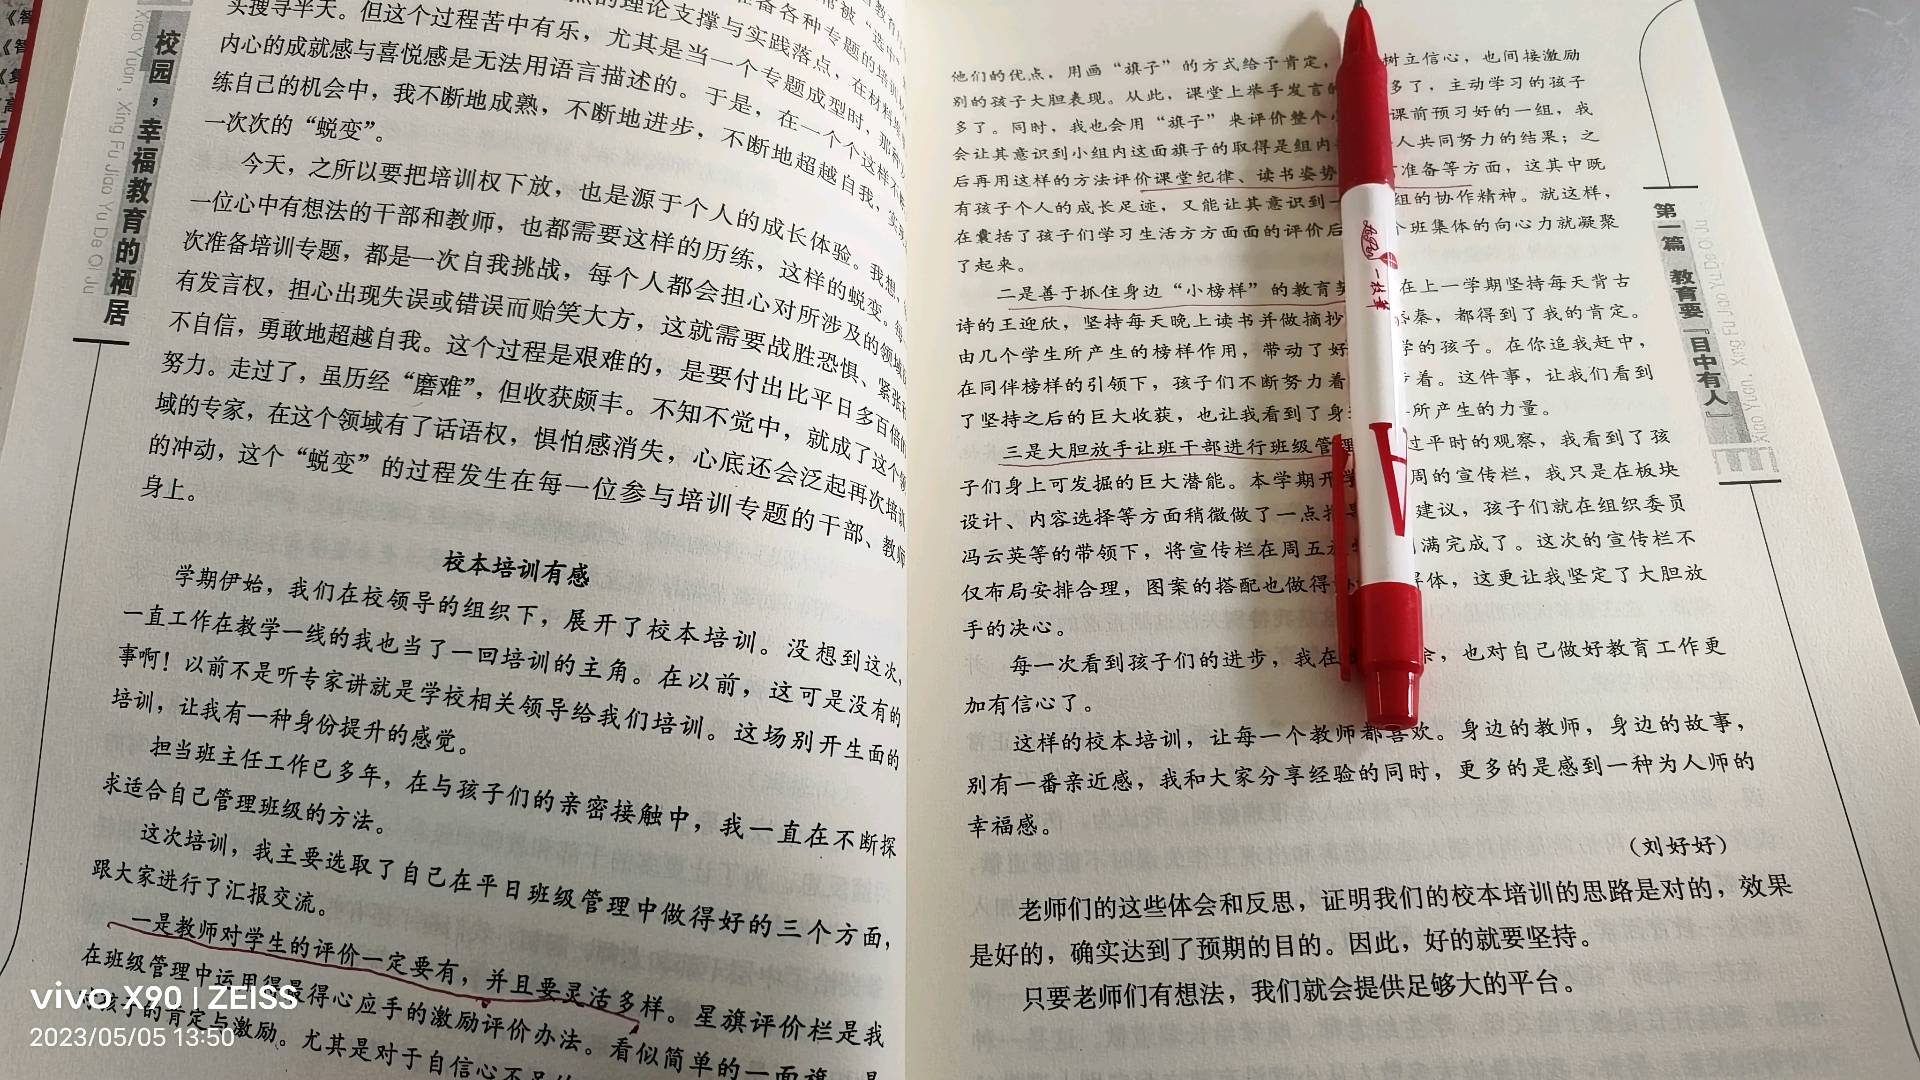 校园，幸福教育的栖居
Xiao Yuan, Xing Fu Jiao Yu De Qi Ju
的理论支撑与实践落点，在材料
头搜寻半天。但这个过程苦中有乐，尤其是当一个专题成型时，那种
内心的成就感与喜悦感是无法用语言描述的。于是，在一个个这样
练自己的机会中，我不断地成熟，不断地进步，不断地超越自我，实
一次次的“蜕变”。
今天，之所以要把培训权下放，也是源于个人的成长体验。我想，
一位心中有想法的干部和教师，也都需要这样的历练，这样的蜕变。每
次准备培训专题，都是一次自我挑战，每个人都会担心对所涉及的领域
有发言权，担心出现失误或错误而贻笑大方，这就需要战胜恐惧、紧张
不自信，勇敢地超越自我。这个过程是艰难的，是要付出比平日多百倍的
努力。走过了，虽历经“磨难”，但收获颇丰。不知不觉中，就成了这个领
域的专家，在这个领域有了话语权，惧怕感消失，心底还会泛起再次培训
的冲动，这个“蜕变”的过程发生在每一位参与培训专题的干部、教师
身上。
校本培训有感
学期伊始，我们在校领导的组织下，展开了校本培训。没想到这次，
一直工作在教学一线的我也当了一回培训的主角。在以前，这可是没有的
事啊！以前不是听专家讲就是学校相关领导给我们培训。这场别开生面的
培训，让我有一种身份提升的感觉。
担当班主任工作已多年，在与孩子们的亲密接触中，我一直在不断探
求适合自己管理班级的方法。
这次培训，我主要选取了自己在平日班级管理中做得好的三个方面，
跟大家进行了汇报交流。
一是教师对学生的评价一定要有，并且要灵活多样。星旗评价栏是我
在班级管理中运用得最得心应手的激励评价办法。看似简单的一面旗
对孩子的肯定与激励。尤其是对于自信心不足的
他们的优点，用画“旗子”的方式给予肯定，树立信心，也间接激励
别的孩子大胆表现。从此，课堂上举手发言的多了，主动学习的孩子
多了。同时，我也会用“旗子”来评价整个小课前预习好的一组，我
会让其意识到小组内这面旗子的取得是组内人共同努力的结果；之
后再用这样的方法评价课堂纪律、读书姿势准备等方面，这其中既
有孩子个人的成长足迹，又能让其意识到组的协作精神。就这样，
在囊括了孩子们学习生活方方面面的评价后个班集体的向心力就凝聚
了起来。
二是善于抓住身边“小榜样”的教育在上一学期坚持每天背古
诗的王迎欣，坚持每天晚上读书并做摘抄秦，都得到了我的肯定。
由几个学生所产生的榜样作用，带动了好学的孩子。在你追我赶中，
在同伴榜样的引领下，孩子们不断努力着着。这件事，让我们看到
了坚持之后的巨大收获，也让我看到了身所产生的力量。
三是大胆放手让班干部进行班级管理过平时的观察，我看到了孩
子们身上可发掘的巨大潜能。本学期开学周的宣传栏，我只是在板块
设计、内容选择等方面稍微做了一点指建议，孩子们就在组织委员
冯云英等的带领下，将宣传栏在周五满完成了。这次的宣传栏不
仅布局安排合理，图案的搭配也做得得体，这更让我坚定了大胆放
手的决心。
每一次看到孩子们的进步，我在余，也对自己做好教育工作更
加有信心了。
这样的校本培训，让每一个教师都喜欢。身边的教师，身边的故事，
别有一番亲近感，我和大家分享经验的同时，更多的是感到一种为人师的
幸福感。
（刘好好）
老师们的这些体会和反思，证明我们的校本培训的思路是对的，效果
是好的，确实达到了预期的目的。因此，好的就要坚持。
只要老师们有想法，我们就会提供足够大的平台。
第一篇 教育要『目中有人』
一枝笔
A
vivo X90 | ZEISS
2023/05/05 13:50